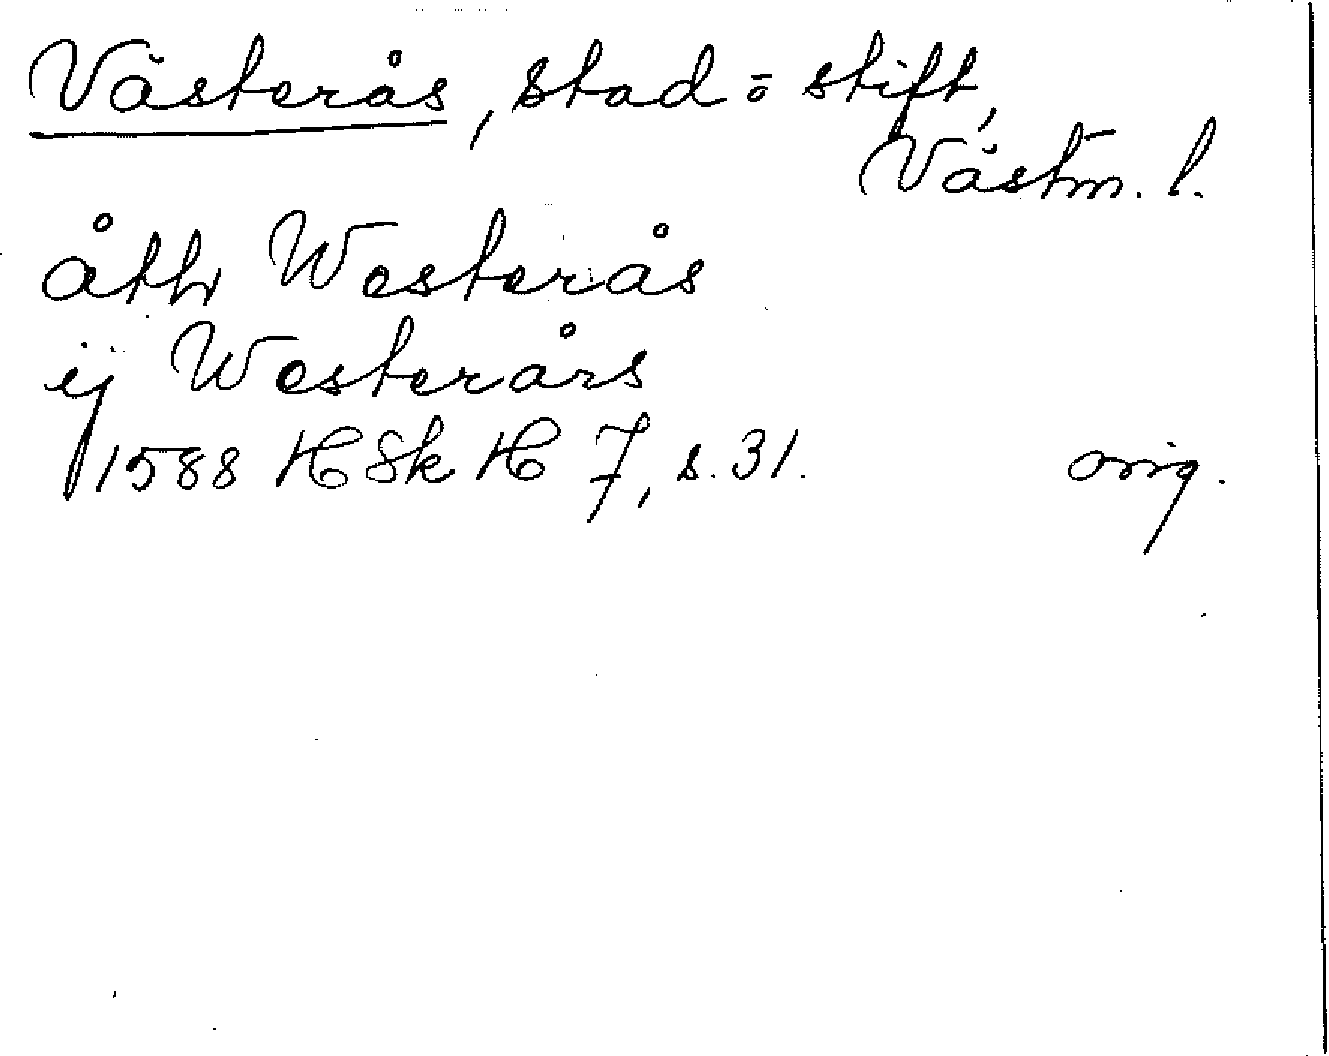 Västerås, stad o stift,
Västm. l.
åth Westerås
ij Westerårs
1588 HSkH 7, s. 31. orig.